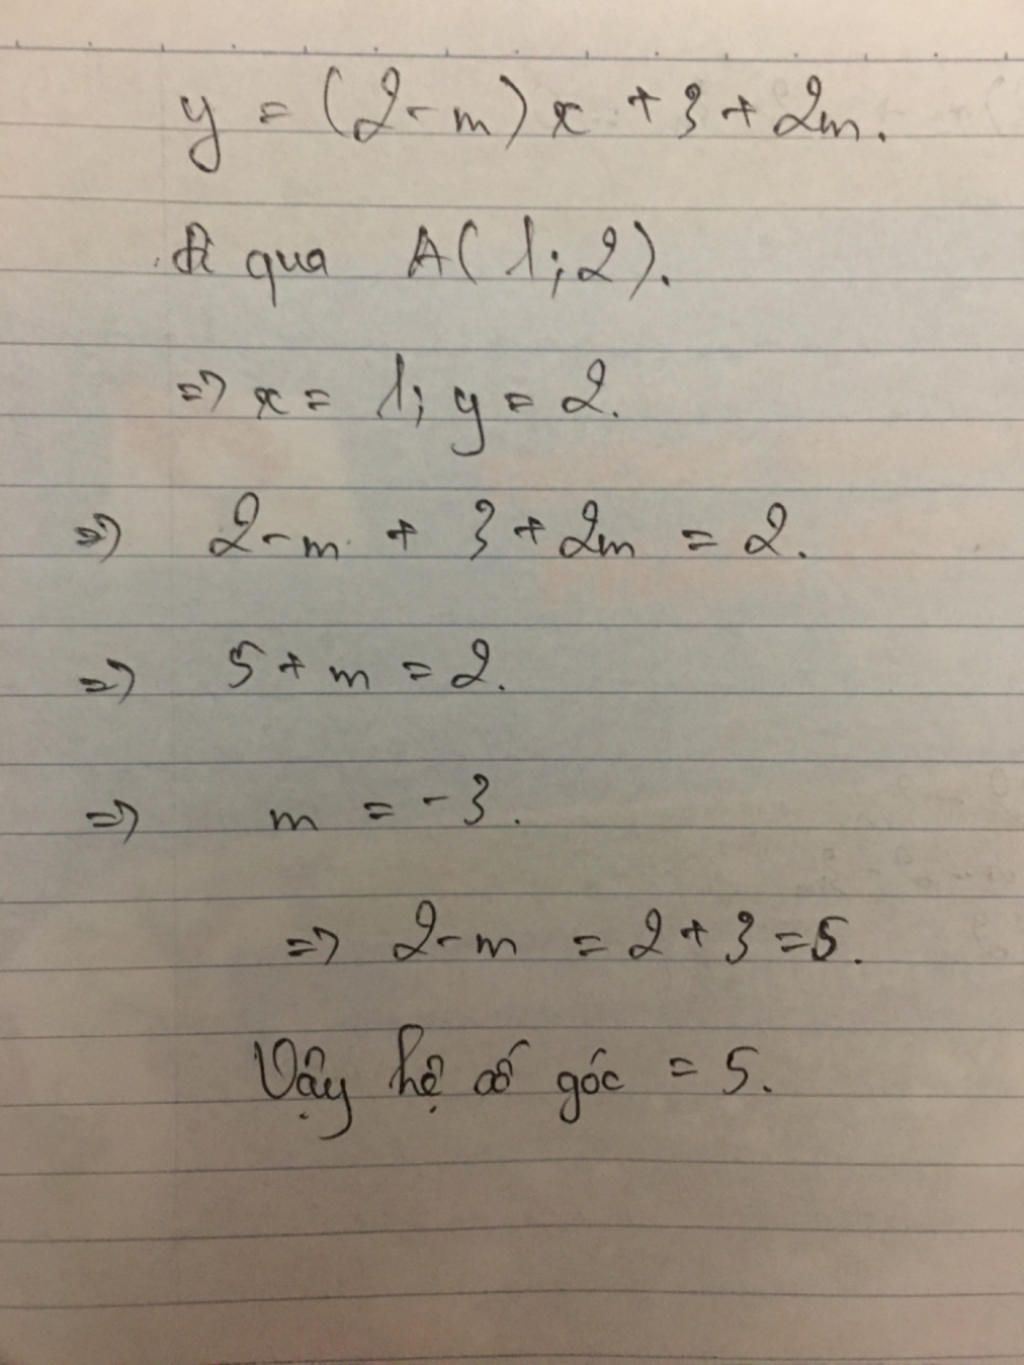 y = (2-m)x + 3 + 2m.
đi qua A(1;2).
=> x = 1; y = 2.
=> 2-m + 3 + 2m = 2.
=> 5 + m = 2.
=> m = -3.
=> 2-m = 2 + 3 = 5.
Vậy hệ số góc = 5.